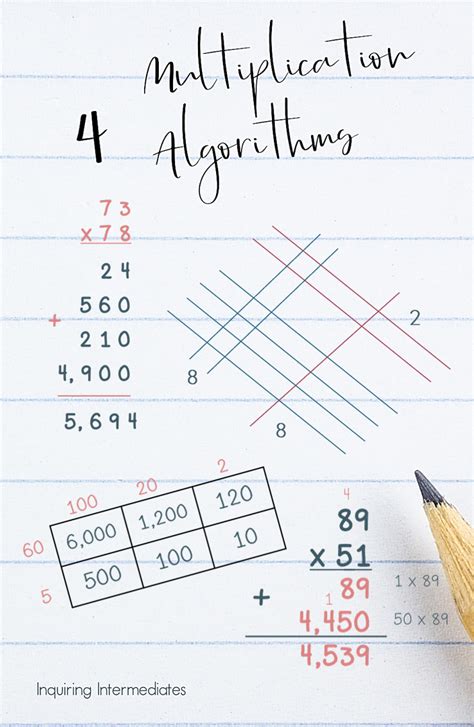 Multiplication
4 Algorithms
73
x 78
24
560
+ 210
4,900
5,694
2
8
8
100 20 2
60 6,000 1,200 120
5 500 100 10
4
89
x 51
+ 89 1 x 89
1
4,450 50 x 89
4,539
Inquiring Intermediates